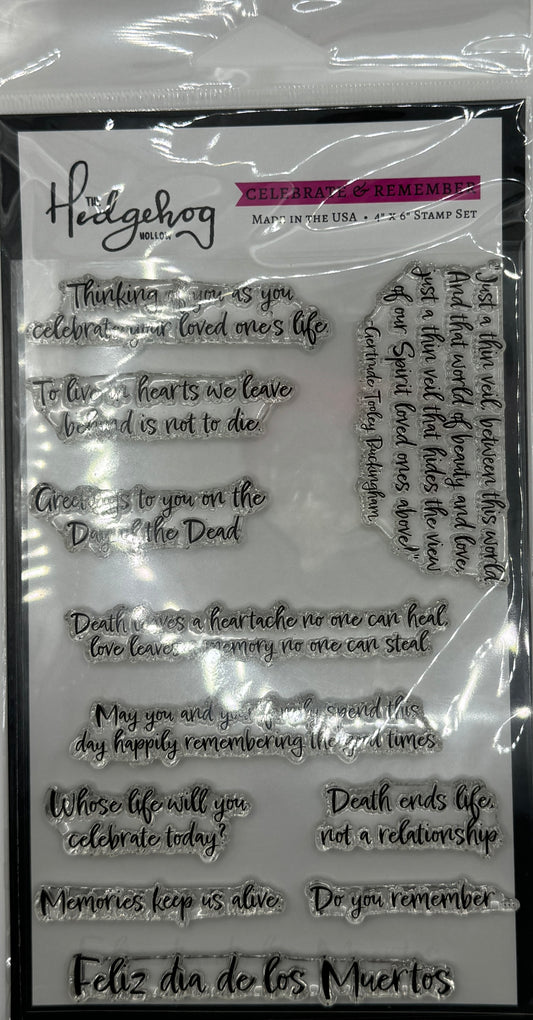 The
Hedgehog
Hollow
Celebrate & Remember
Made in the USA • 4" x 6" Stamp Set
Thinking of you as you
celebrate your loved one's life.
To live in hearts we leave
behind is not to die.
Greetings to you on the
Day of the Dead
"Just a thin veil, between this world
And that world of beauty and love,
Just a thin veil that hides the view
of our Spirit loved ones above!"
-Gertrude Tooley Buckingham
Death leaves a heartache no one can heal,
love leaves a memory no one can steal.
May you and your family spend this
day happily remembering the good times.
Whose life will you
celebrate today?
Death ends life,
not a relationship
Memories keep us alive.
Do you remember...
Feliz dia de los Muertos